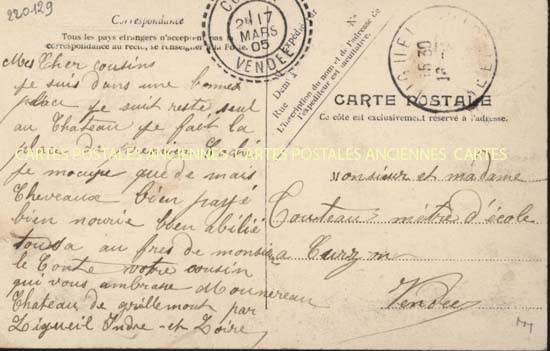 220129
Correspondance
Tous les pays étrangers n'acceptent pas la
correspondance au recto, se renseigner à la Poste.
17
MARS
05
VENDEE
Expéditeur
Demt à
Rue
L'inscription du nom et de l'adresse de
l'expéditeur est facultative.
LIGUEIL
CARTE POSTALE
Ce côté est exclusivement réservé à l'adresse.
Mes Cher cousins
je suis dans une bonnes
place je suit reste seul
au Chateau je fait la
place de
je mocupe que de mais
Cheveaux bien payé
bien nourie bien abilié
tousa au pres de monsieur
le Conte votre cousin
qui vous ambrase Mounereau
Chateau de grillemont par
Ligueil Indre et Loire
CARTES POSTALES ANCIENNES CARTES POSTALES ANCIENNES CARTES
Monsieur et madame
Couteau métre d'école
a Curzon
Vendee